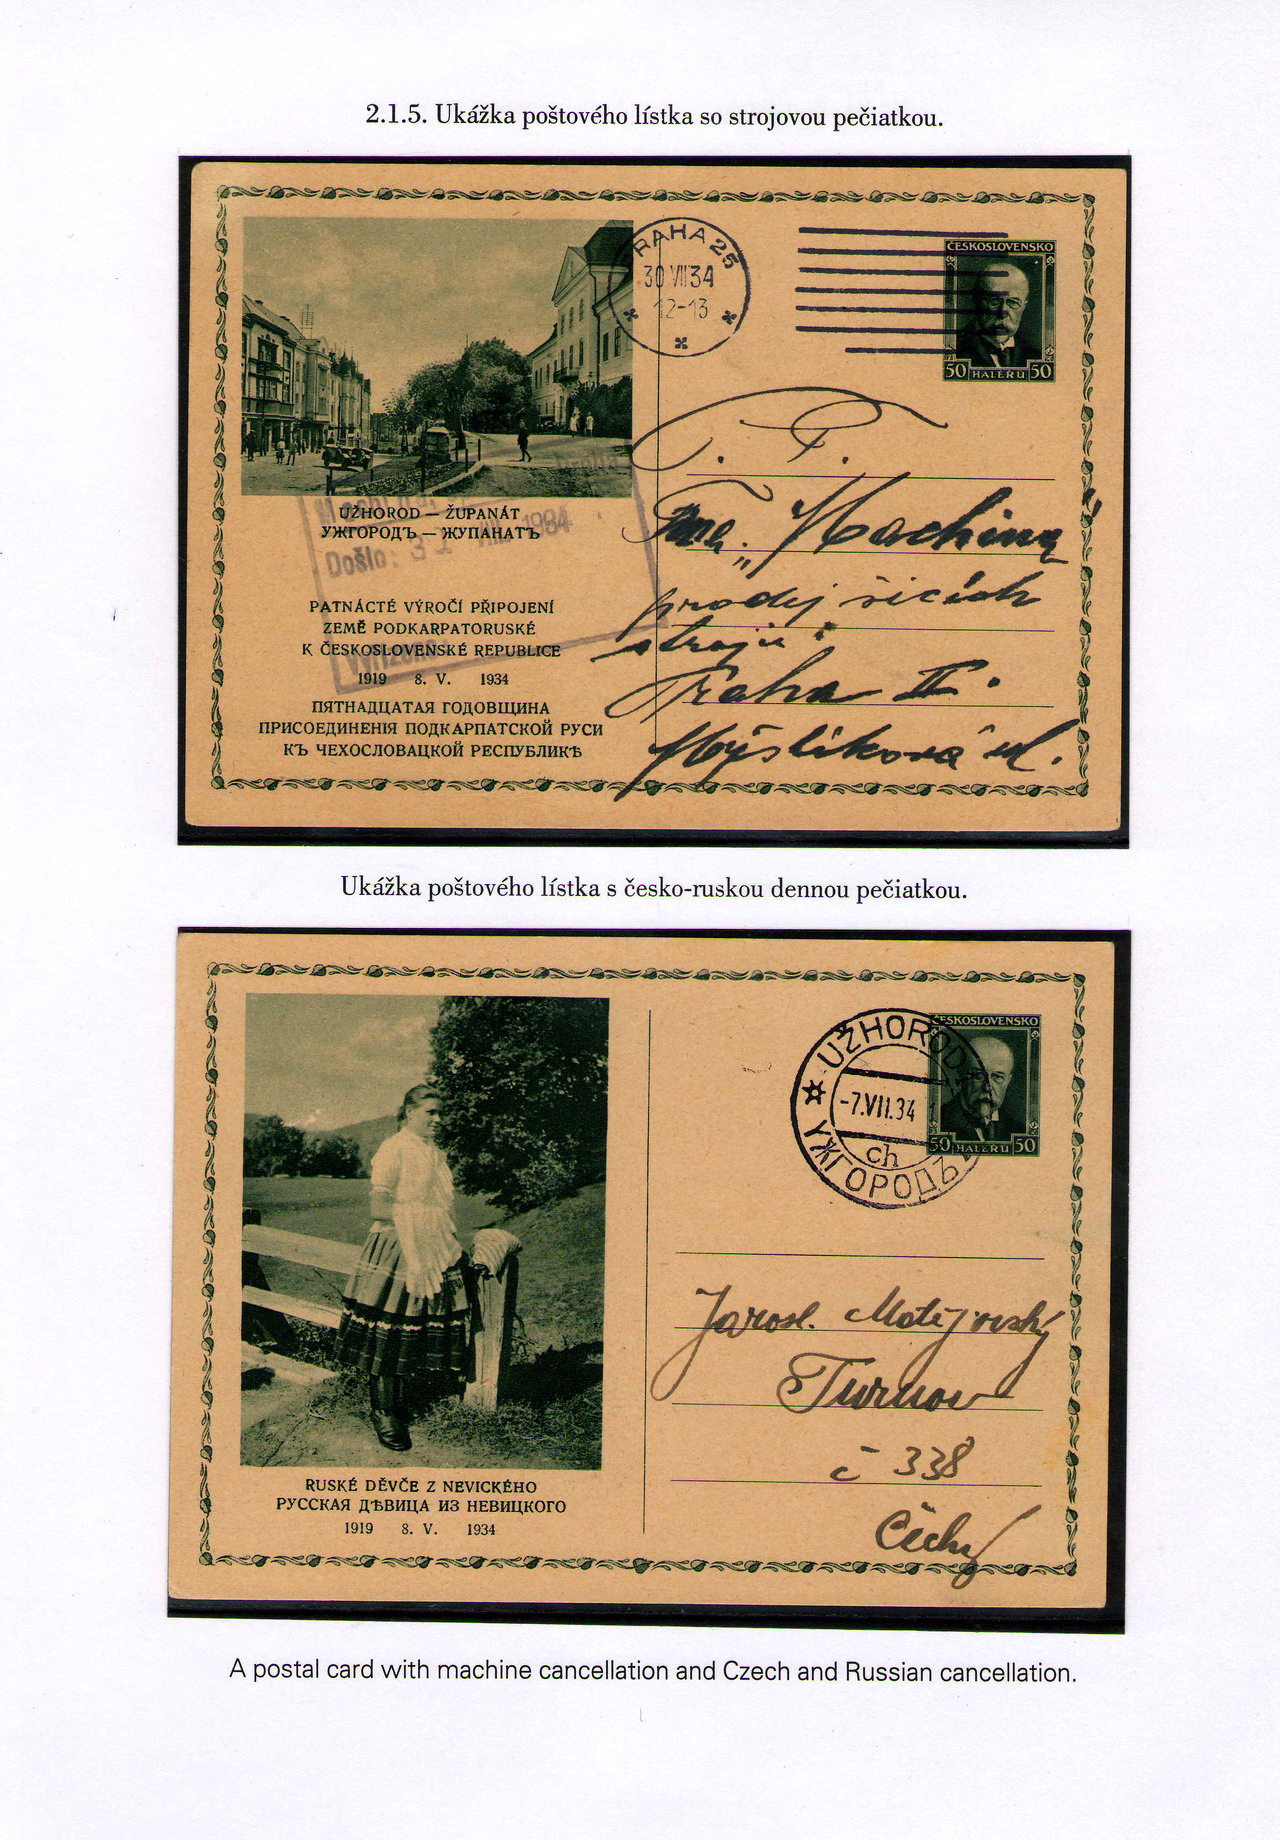 2.1.5. Ukážka poštového lístka so strojovou pečiatkou.
PRAHA 25
30 VII 34
12-13
ČESKOSLOVENSKO
50 HALÉŘŮ 50
T. T.
Fma. „Machina"
prodej šicích
strojů
Praha II.
Myslíkova ul.
UŽHOROD — ŽUPANÁT
УЖГОРОДЪ — ЖУПАНАТЪ
Došlo: 31 VII. 1934
Vyřízeno
PATNÁCTÉ VÝROČÍ PŘIPOJENÍ
ZEMĚ PODKARPATORUSKÉ
K ČESKOSLOVENSKÉ REPUBLICE
1919 8. V. 1934
ПЯТНАДЦАТАЯ ГОДОВЩИНА
ПРИСОЕДИНЕНІЯ ПОДКАРПАТСКОЙ РУСИ
КЪ ЧЕХОСЛОВАЦКОЙ РЕСПУБЛИКѢ
Ukážka poštového lístka s česko-ruskou dennou pečiatkou.
UŽHOROD
-7.VII.34
ch
УЖГОРОДЪ
ČESKOSLOVENSKO
50 HALÉŘŮ 50
Jarosl. Matějovský
Turnov
č 338
Čechy
RUSKÉ DĚVČE Z NEVICKÉHO
РУССКАЯ ДѢВИЦА ИЗ НЕВИЦКОГО
1919 8. V. 1934
A postal card with machine cancellation and Czech and Russian cancellation.